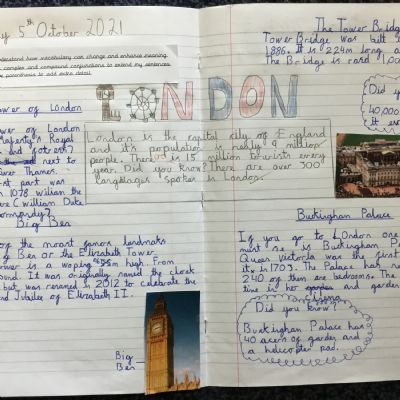 y 5th October 2021
understand how vocabulary can change and enhance meaning.
complex and compound conjunctions to extend my sentences.
parenthesis to add extra detail.
LONDON
London is the capital city of England
and it's population is nearly 9 million
people. There is 15 million tourists every
year. Did you know? There are over 300
languages spoken in London.
Tower of London
ower of London
Majesty's Royal
and fotress?
next to
iver Thames.
irst part was
in 1078 William the
William Duke
ormandy?
Big Ben
of the mount famors landmaks
ig Ben or the Elizabeth Tower.
tower is a woping 96m high. From
ound. It was originally named the clock
but was renamed in 2012 to celebrate the
nd Jubilee of Elizabeth II.
Big
Ben
The Tower Bridg
Tower Bridge was built
1886. It is 224m long a
The Bridge is rasd 1,00
Did you
40,000
it eve
Buckingham Palace
If you go to London one
must see is Buckingham P
Queen Victoria was the first
it, in 1703. The Palace has
240 of then are bedrooms. The
time is her garden
Did you know?
Buckingham Palace has
40 acers of garden and
a helicopter pad.